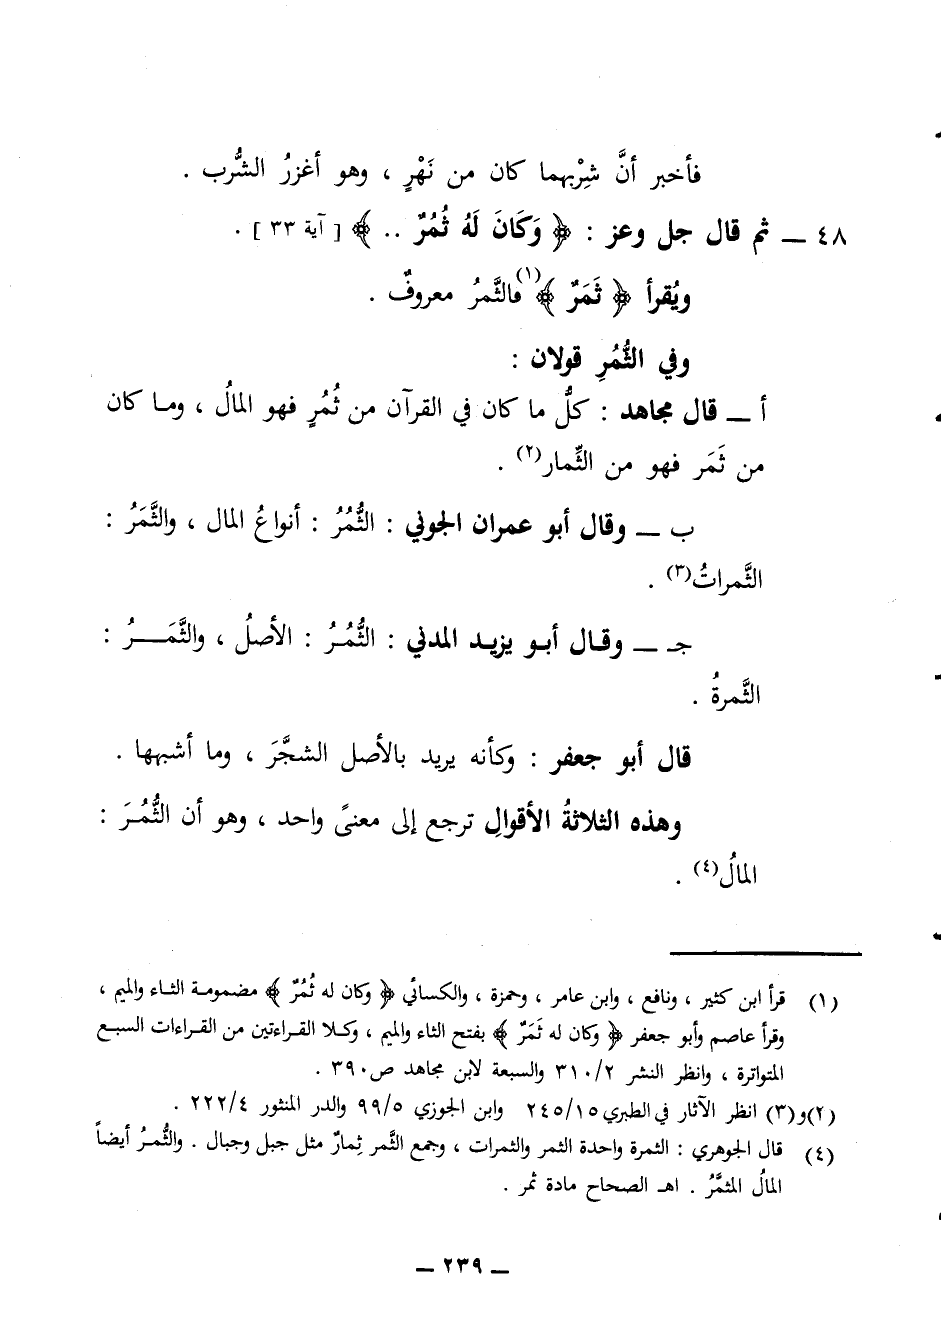 فأخبر أنَّ شِرْبهما كان من نَهْرٍ ، وهو أغزرُ الشُّرب .
٤٨ ــ ثم قال جل وعز : ﴿ وَكَانَ لَهُ ثُمُرٌ .. ﴾ [ آية ٣٣ ] .
ويُقرأ ﴿ ثَمَرٌ ﴾(١) فالثَّمرُ معروفٌ .
وفي الثُّمُرِ قولان :
أ ــ قال مجاهد : كلُّ ما كان في القرآن من ثُمُرٍ فهو المالُ ، وما كان
من ثَمَر فهو من الثِّمار(٢) .
ب ــ وقال أبو عمران الجوني : الثُّمُرُ : أنواعُ المال ، والثَّمَرُ :
الثَّمراتُ(٣) .
جـ ــ وقال أبو يزيد المدني : الثُّمُرُ : الأصلُ ، والثَّمَرُ :
الثَّمرةُ .
قال أبو جعفر : وكأنه يريد بالأصل الشجَّرَ ، وما أشبهها .
وهذه الثلاثةُ الأقوالِ ترجع إلى معنىً واحد ، وهو أن الثُّمُرَ :
المالُ(٤) .
(١) قرأ ابن كثير ، ونافع ، وابن عامر ، وحمزة ، والكسائي ﴿ وكان له ثُمُرٌ ﴾ مضمومة الثاء والميم ،
وقرأ عاصم وأبو جعفر ﴿ وكان له ثَمَرٌ ﴾ بفتح الثاء والميم ، وكلا القراءتين من القراءات السبع
المتواترة ، وانظر النشر ٣١٠/٢ والسبعة لابن مجاهد ص٣٩٠ .
(٢)و(٣) انظر الآثار في الطبري ٢٤٥/١٥ وابن الجوزي ٩٩/٥ والدر المنثور ٢٢٢/٤ .
(٤) قال الجوهري : الثمرة واحدة الثمر والثمرات ، وجمع الثَّمر ثِمارٌ مثل جبل وجبال . والثُّمرُ أيضاً
المالُ المثمَّرُ . اهـ الصحاح مادة ثمر .
ــ ٢٣٩ ــ